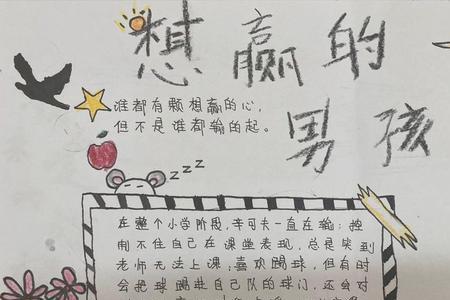 想赢的
男孩
谁都有颗想赢的心,
但不是谁都输的起。
zzz
在整个小学阶段,辛可夫一直在输:控
制不住自己在课堂表现,总是笑到
老师无法上课;喜欢踢球,但有时
会把球踢进自己队的球门,还会对